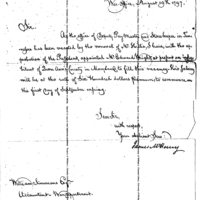 War Office, August 19th 1797.
Sir
As the office of Deputy Pay Master and Storekeeper, in
has been vacated by the removal of Mr. I have, with the
of the President, appointed Mr. Edward Wright at present on
of Queen Anns County in Maryland to fill this vacancy. His Salary
will be at the rate of Six Hundred dollars per annum, to commence on
the first day of September ensuing.
I am Sir,
with respect,
Your obedient Serv.
James McHenry
William Simmons Esqr.
Accountant War Department.